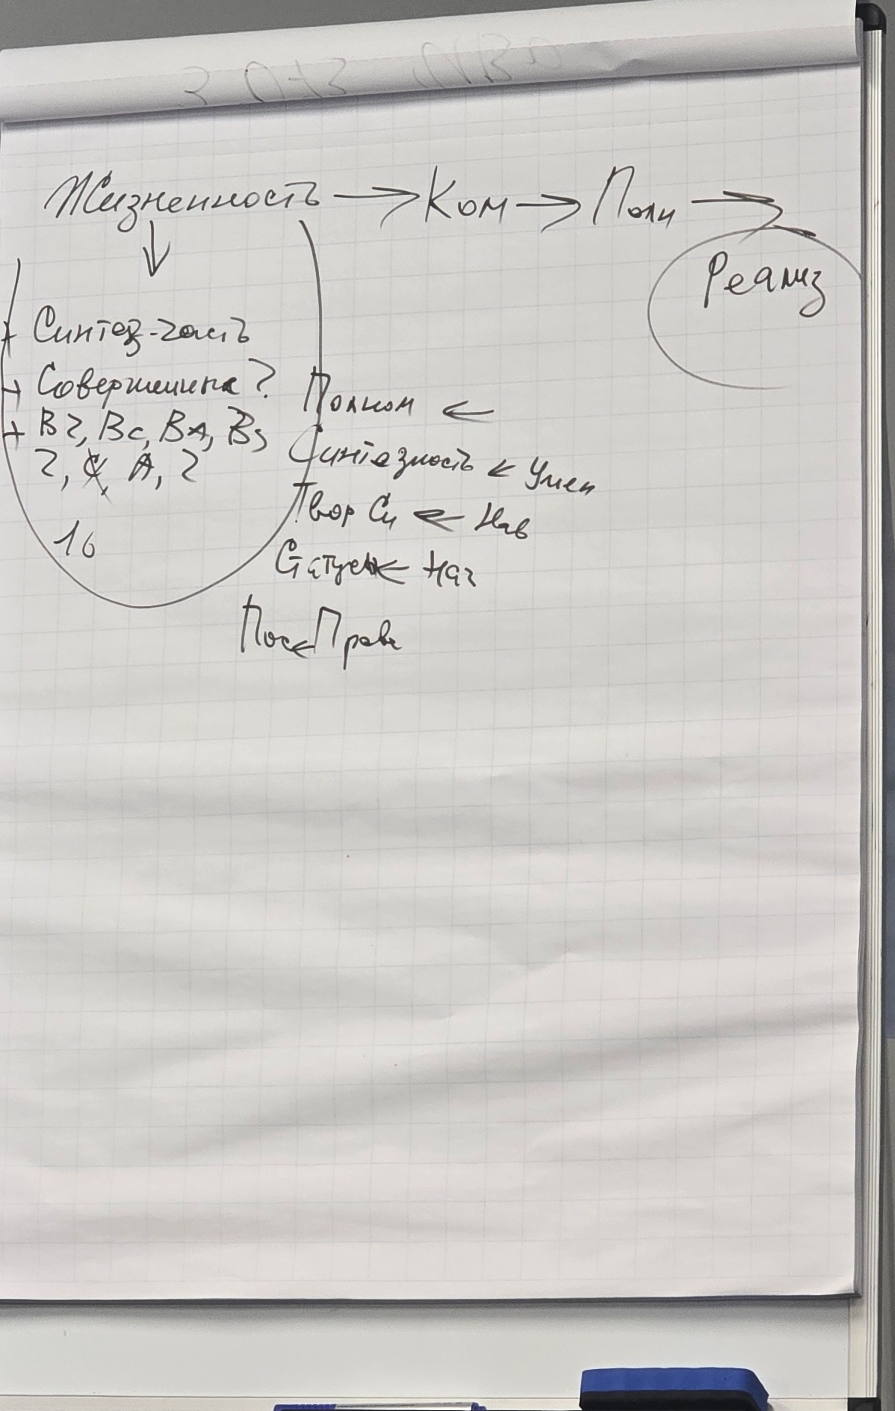 Жизненность → Ком → Поли →
Реализ
↓
+ Синтез-часть
+ Совершенная?
+ ВЧ, ВС, ВА, ВЧ
Ч, С, А, Ч
16
Полном ←
Синтезность ← Умен
Твор Си ← Нав
Статус ← Нач
Пос ← Прав